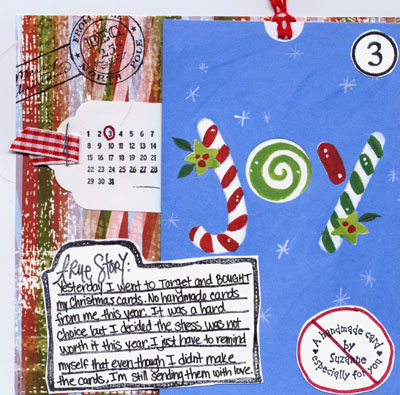 FROM THE
DEC
23
NORTH POLE
1 2 3 4 5 6 7
8 9 10 11 12 13 14
15 16 17 18 19 20 21
22 23 24 25 26 27 28
29 30 31
3
JOY
True Story:
Yesterday I went to Target and BOUGHT
my Christmas cards. No handmade cards
from me this year. It was a hard
choice but I decided the stress was not
worth it this year. I just have to remind
myself that even though I didn't make
the cards, I'm still sending them with love.
A handmade card
by
Suzanne
especially for you